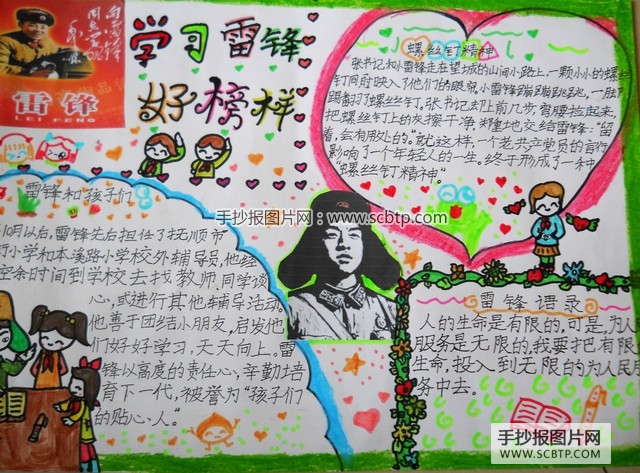 向雷锋
同志学习
毛泽东
雷锋
LEI FENG
学习雷锋
好榜样
螺丝钉精神
张书记和小雷锋走在望城的山间小路上,一颗小小的螺丝
钉同时映入了他们的眼帘,小雷锋蹦蹦跳跳,一脚
踢翻了螺丝钉。张书记却上前几步弯腰捡起来,
把螺丝钉上的灰擦干净,郑重地交给雷锋:“留
着,会有用处的。”就这样,一个老共产党员的言行
影响了一个年轻人的一生。终于形成了一种
“螺丝钉精神”。
手抄报图片网:www.scbtp.com
雷锋和孩子们
10月以后,雷锋先后担任了抚顺市
小学和本溪路小学校外辅导员,他经
空余时间到学校去找教师、同学谈
心,或进行其他辅导活动。
他善于团结小朋友,启发他
们好好学习,天天向上。雷
锋以高度的责任心,辛勤培
育下一代,被誉为“孩子们
的贴心人。”
雷锋语录
人的生命是有限的,可是,为人
服务是无限的,我要把有限
生命,投入到无限的为人民服
务中去。
手抄报图片网
WWW.SCBTP.COM